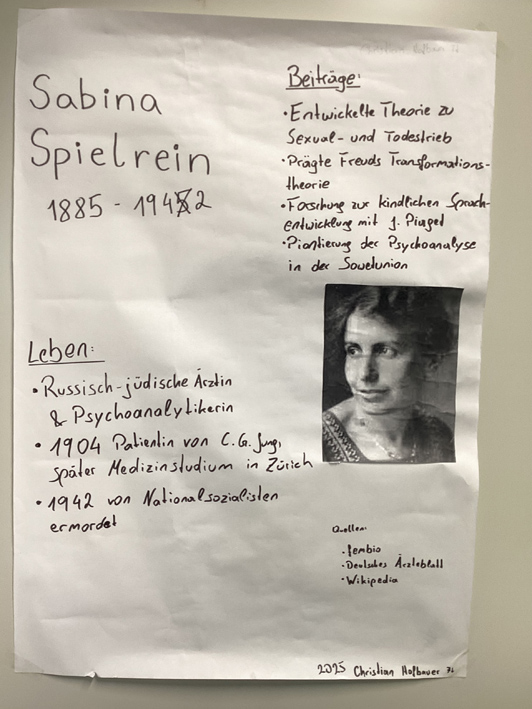 Sabina
Spielrein
1885 - 1942
Leben:
• Russisch-jüdische Ärztin
& Psychoanalytikerin
• 1904 Patientin von C.G. Jung,
später Medizinstudium in Zürich
• 1942 von Nationalsozialisten
ermordet
Beiträge:
• Entwickelte Theorie zu
Sexual- und Todestrieb
• Prägte Freuds Transformations-
theorie
• Forschung zur kindlichen Sprach-
entwicklung mit J. Piaget
• Pionierung der Psychoanalyse
in der Sowetunion
Quellen:
• fembio
• Deutsches Ärzteblatt
• Wikipedia
2025 Christian Hofbauer